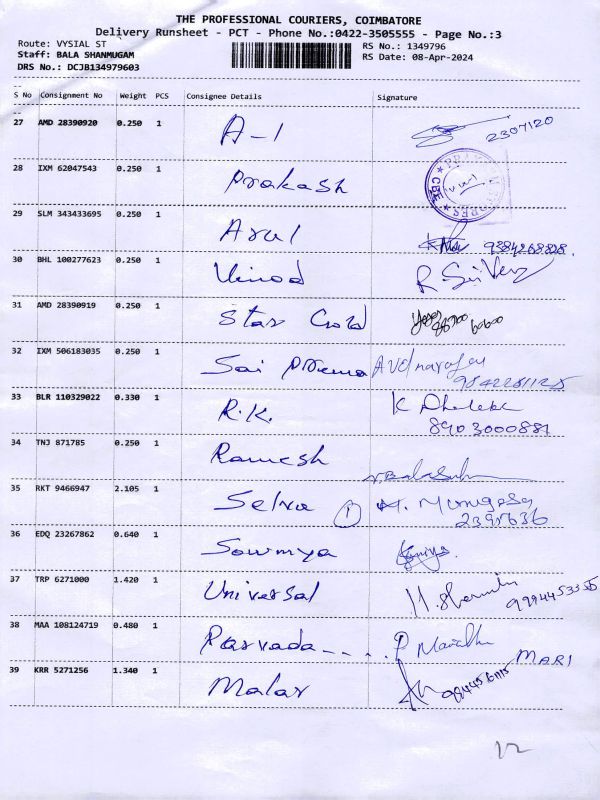 THE PROFESSIONAL COURIERS, COIMBATORE
Delivery Runsheet - PCT - Phone No.:0422-3505555 - Page No.:3
Route: VYSIAL ST
Staff: BALA SHANMUGAM
DRS No.: DCJB134979603
RS No.: 1349796
RS Date: 08-Apr-2024
S No Consignment No Weight PCS Consignee Details Signature
27 AMD 28390920 0.250 1 A-1 2307120
28 IXM 62047543 0.250 1 Prakash
29 SLM 343433695 0.250 1 Arul 9384268828.
30 BHL 100277623 0.250 1 Vinod
31 AMD 28390919 0.250 1 Star Gold
32 IXM 506183035 0.250 1 Sai Prema
33 BLR 110329022 0.330 1 R.K. K
8903000881
34 TNJ 871785 0.250 1 Ramesh
35 RKT 9466947 2.105 1 Selva
36 EDQ 23267862 0.640 1 Sowmya
37 TRP 6271000 1.420 1 Universal 9994453355
38 MAA 108124719 0.480 1 Parvada.... P
MARI
39 KRR 5271256 1.340 1 Malar
12